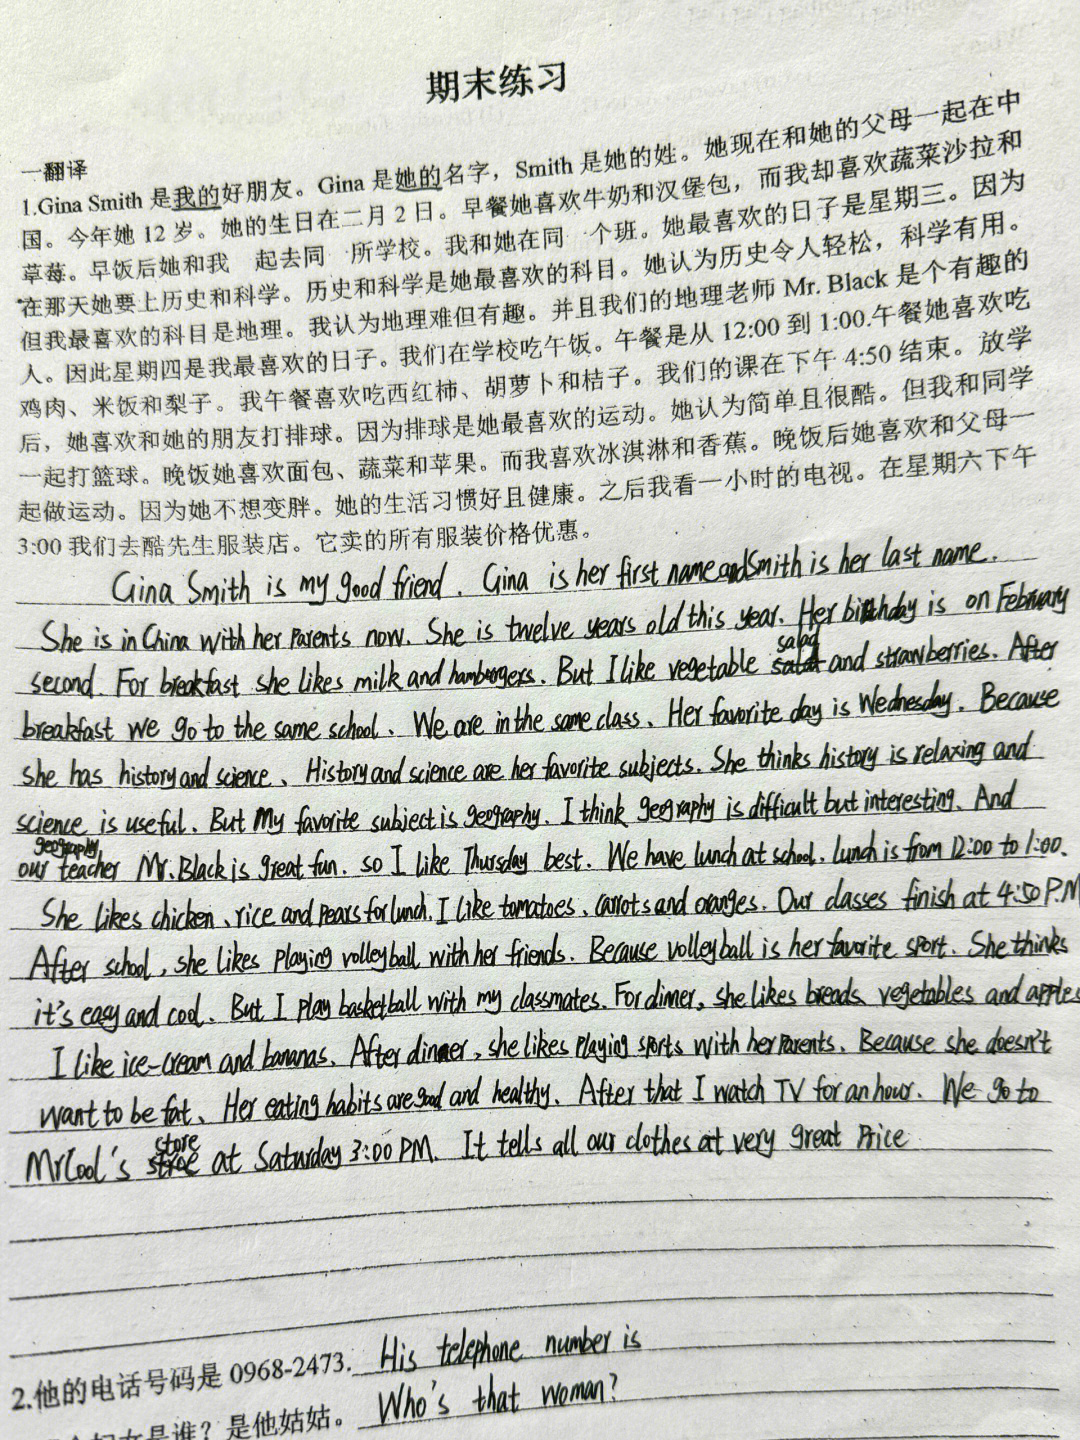 期末练习
一翻译
1.Gina Smith 是我的好朋友。Gina 是她的名字，Smith 是她的姓。她现在和她的父母一起在中
国。今年她 12 岁。她的生日在二月 2 日。早餐她喜欢牛奶和汉堡包，而我却喜欢蔬菜沙拉和
草莓。早饭后她和我 起去同 所学校。我和她在同 个班。她最喜欢的日子是星期三。因为
在那天她要上历史和科学。历史和科学是她最喜欢的科目。她认为历史令人轻松，科学有用。
但我最喜欢的科目是地理。我认为地理难但有趣。并且我们的地理老师 Mr. Black 是个有趣的
人。因此星期四是我最喜欢的日子。我们在学校吃午饭。午餐是从 12:00 到 1:00.午餐她喜欢吃
鸡肉、米饭和梨子。我午餐喜欢吃西红柿、胡萝卜和桔子。我们的课在下午 4:50 结束。放学
后，她喜欢和她的朋友打排球。因为排球是她最喜欢的运动。她认为简单且很酷。但我和同学
一起打篮球。晚饭她喜欢面包、蔬菜和苹果。而我喜欢冰淇淋和香蕉。晚饭后她喜欢和父母一
起做运动。因为她不想变胖。她的生活习惯好且健康。之后我看一小时的电视。在星期六下午
3:00 我们去酷先生服装店。它卖的所有服装价格优惠。
Gina Smith is my good friend. Gina is her first name and Smith is her last name.
She is in China with her parents now. She is twelve years old this year. Her birthday is on February
second. For breakfast she likes milk and hamburgers. But I like vegetable salad and strawberries. After
breakfast we go to the same school. We are in the same class. Her favorite day is Wednesday. Because
she has history and science. History and science are her favorite subjects. She thinks history is relaxing and
science is useful. But my favorite subject is geography. I think geography is difficult but interesting. And
our geography teacher Mr. Black is great fun. so I like Thursday best. We have lunch at school. lunch is from 12:00 to 1:00.
She likes chicken, rice and pears for lunch. I like tomatoes, carrots and oranges. Our classes finish at 4:50 P.M
After school, she likes playing volleyball with her friends. Because volleyball is her favorite sport. She thinks
it's easy and cool. But I play basketball with my classmates. For dinner, she likes breads vegetables and apples
I like ice-cream and bananas. After dinner, she likes playing sports with her parents. Because she doesn't
want to be fat. Her eating habits are good and healthy. After that I watch TV for an hour. We go to
Mr Cool's store at Saturday 3:00 PM. It tells all our clothes at very great price
2.他的电话号码是 0968-2473. His telephone number is
妇女是谁？是他姑姑。 Who's that woman?